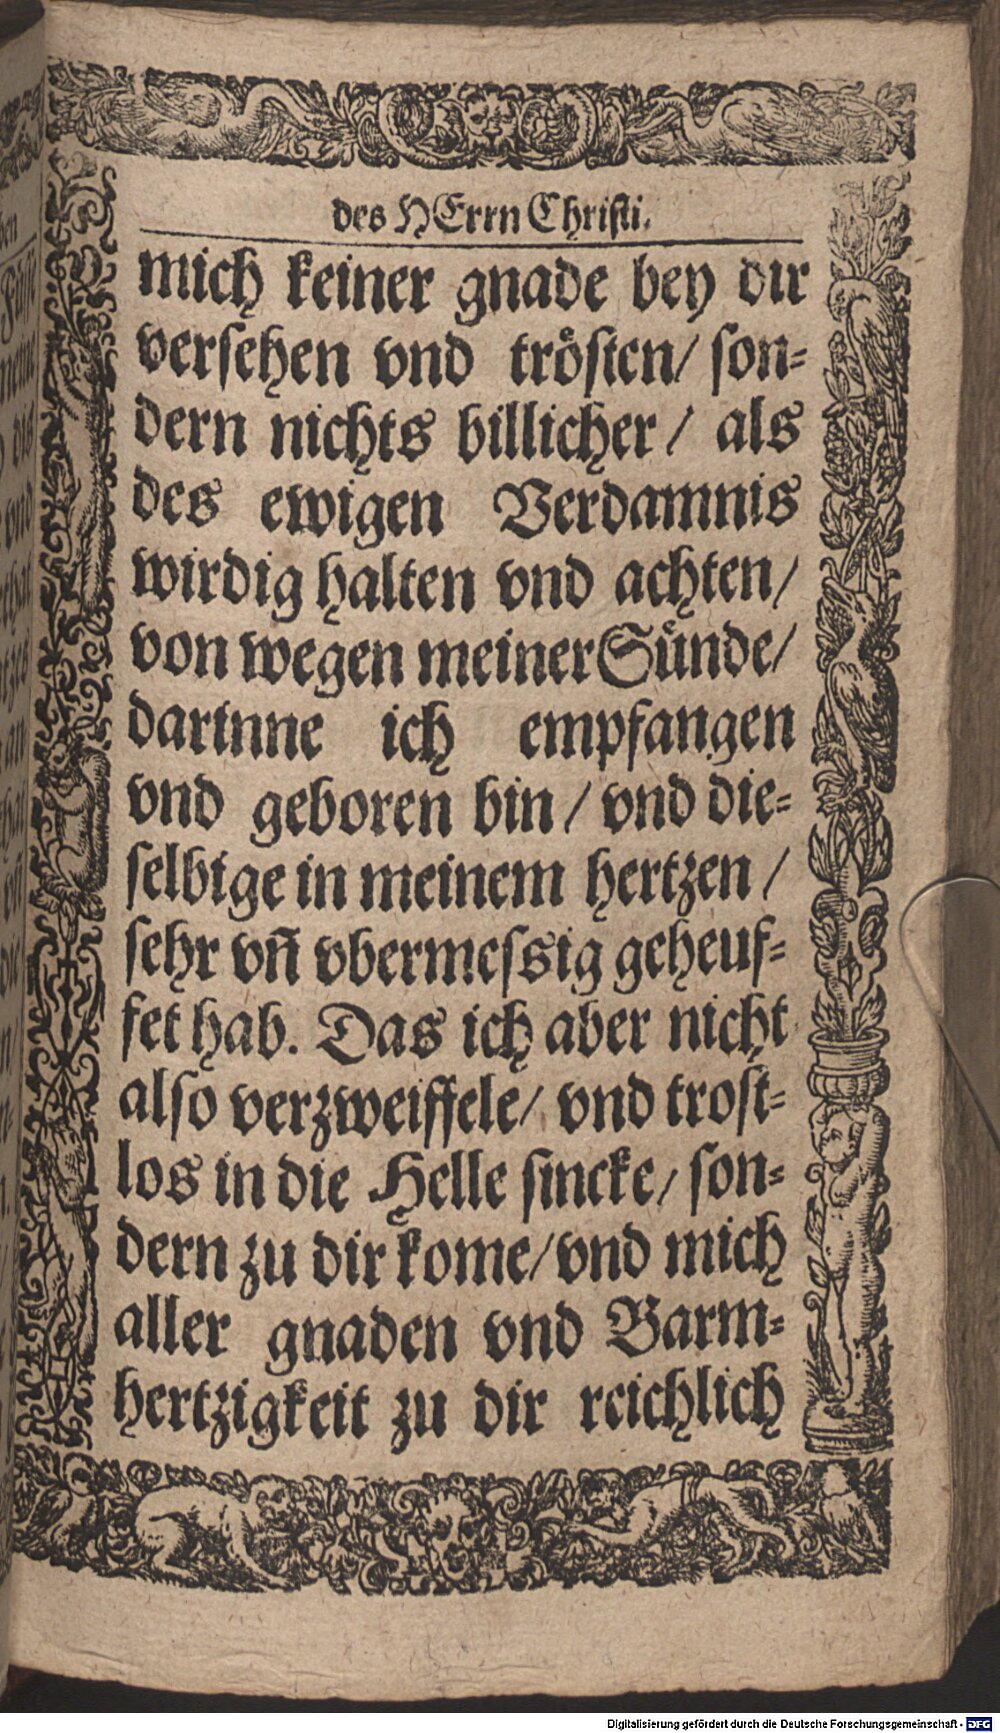 des HErrn Christi.
mich keiner gnade bey dir
versehen vnd trösten/ son-
dern nichts billicher/ als
des ewigen Verdamnis
wirdig halten vnd achten/
von wegen meiner Sünde/
darinne ich empfangen
vnd geboren bin/ vnd die-
selbige in meinem hertzen/
sehr vñ vbermessig geheuf-
fet hab. Das ich aber nicht
also verzweiffele/ vnd trost-
los in die Helle sincke/ son-
dern zu dir kome/ vnd mich
aller gnaden vnd Barm-
hertzigkeit zu dir reichlich
Digitalisierung gefördert durch die Deutsche Forschungsgemeinschaft - DFG